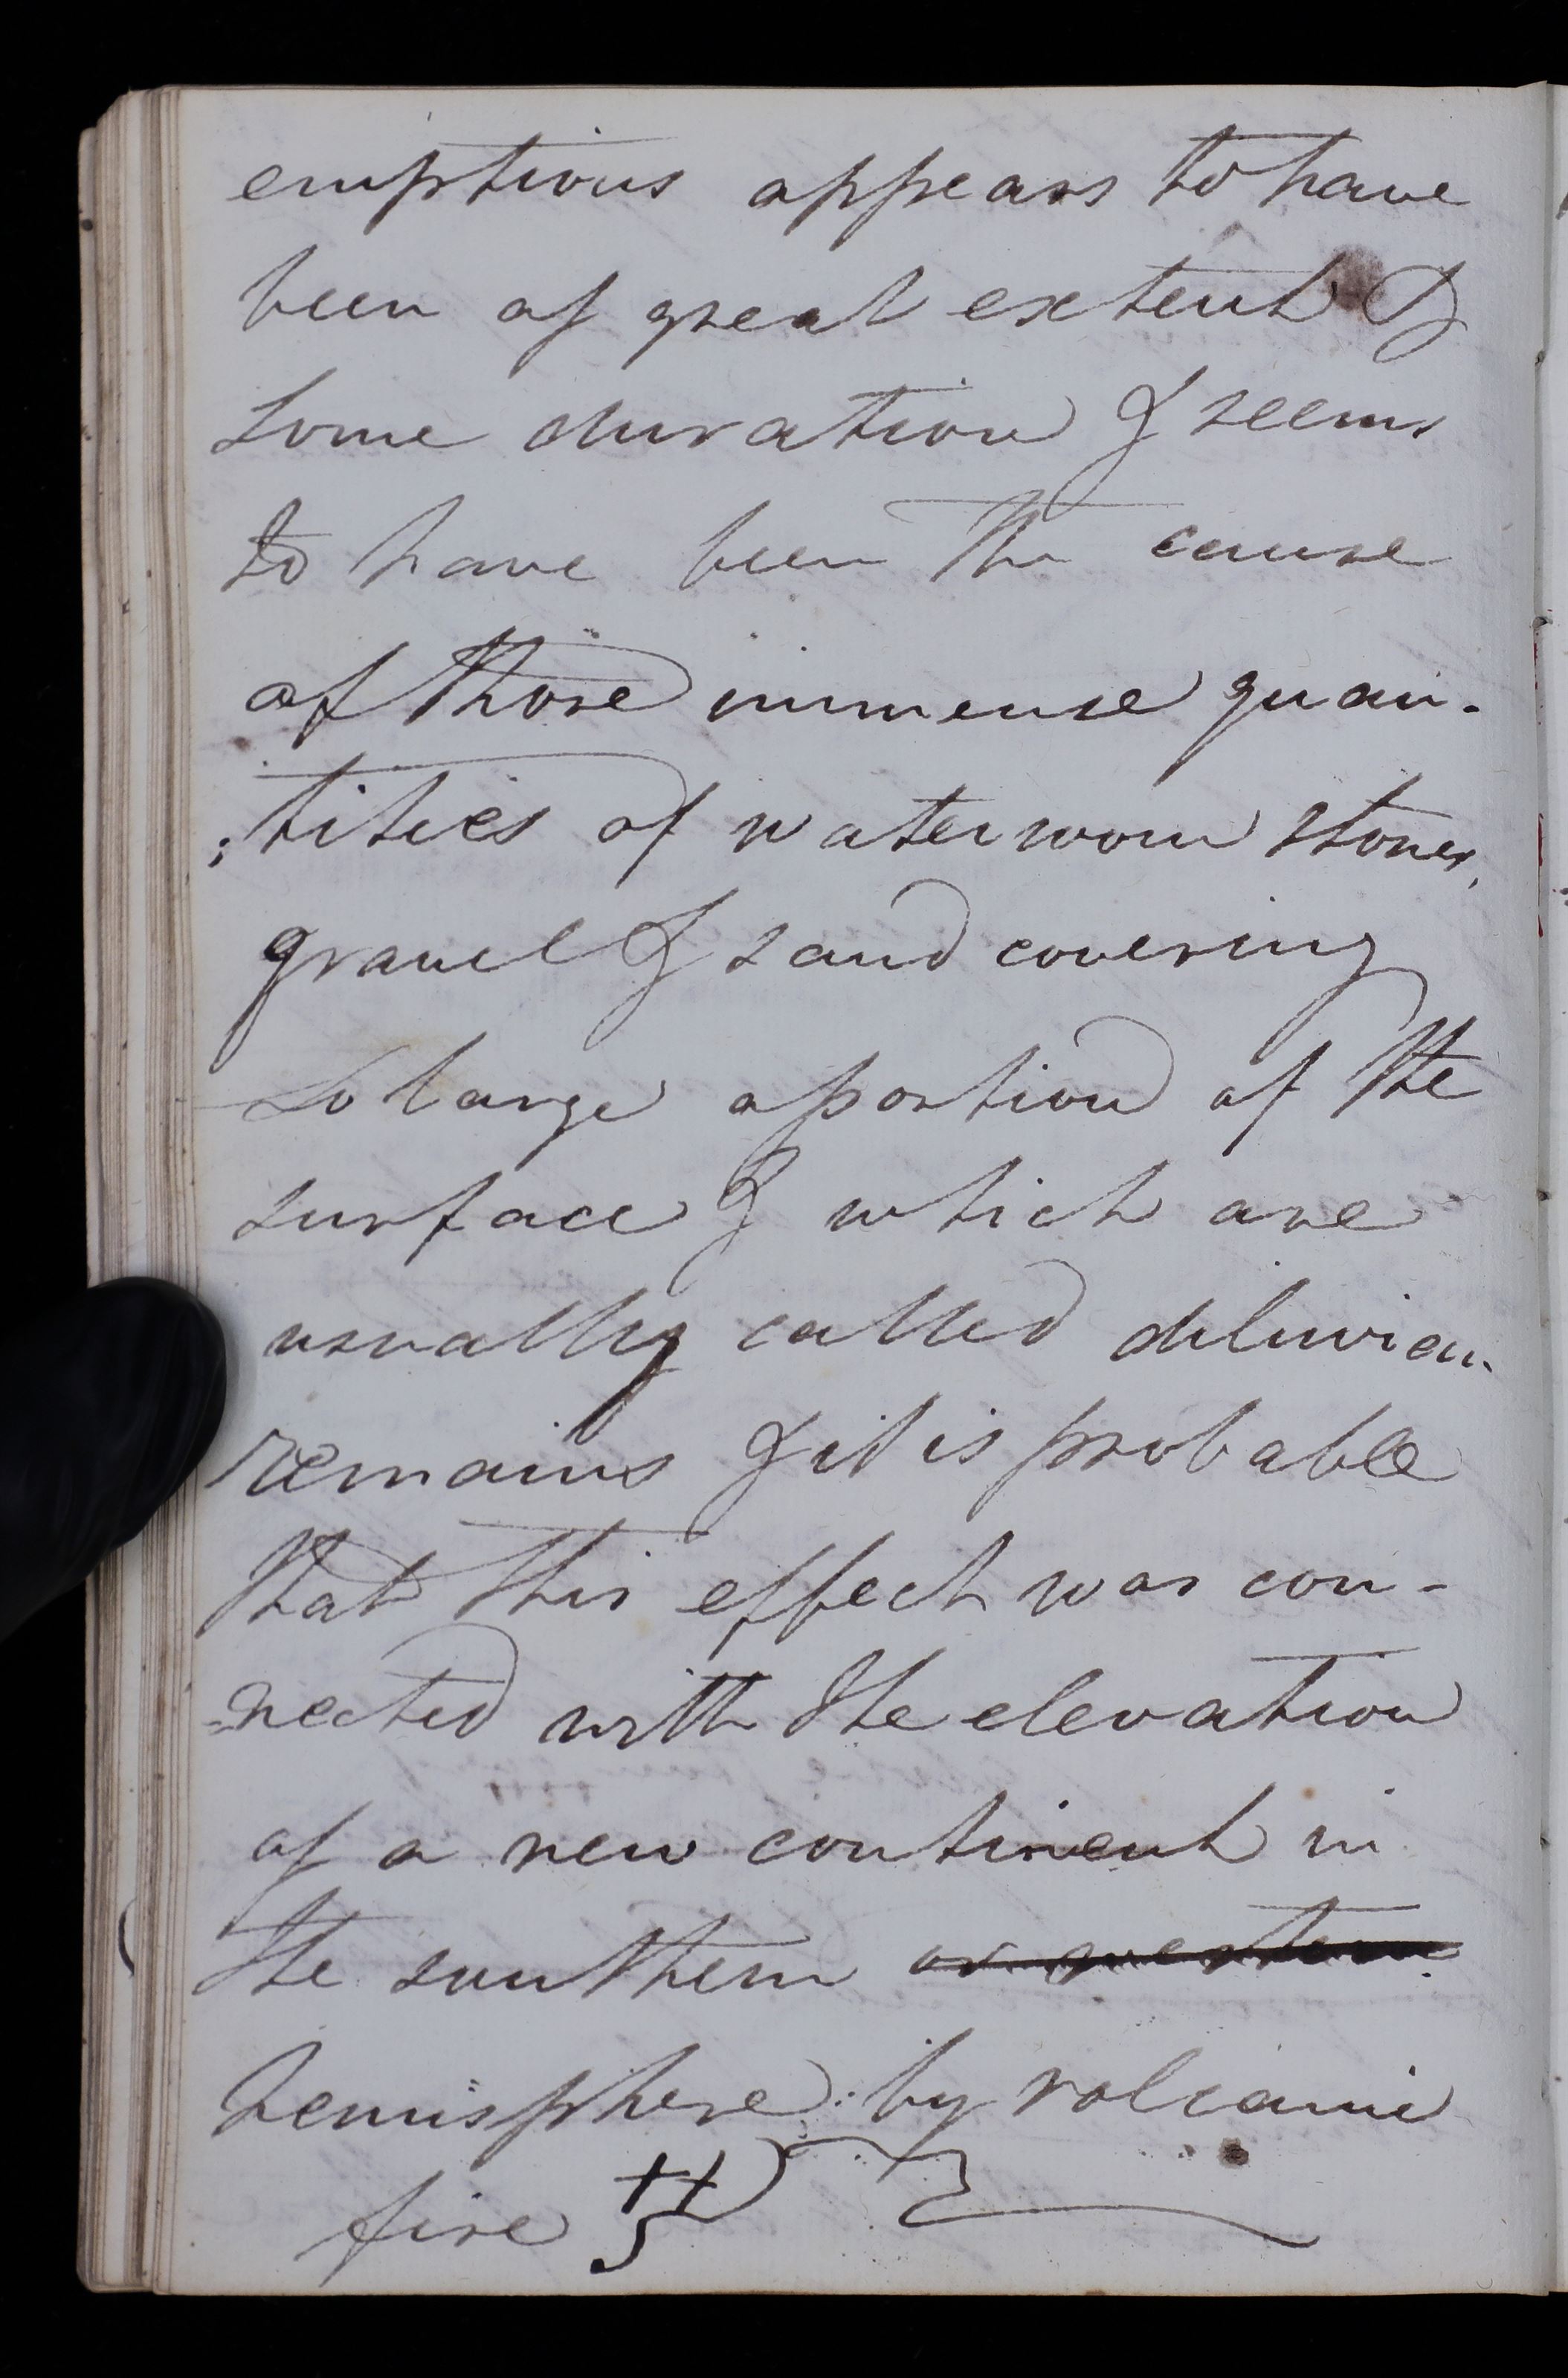 eruptions appears to have
been of great extent &
some duration & seems
to have been the cause
of those immense quan-
:tities of water worn stones,
gravel & sand covering
so large a portion of the
surface & which are
usually called diluvian
remains & it is probable
that this effect was con-
=nected with the elevation
of a new continent in
the southern or western
hemisphere by volcanic
fire